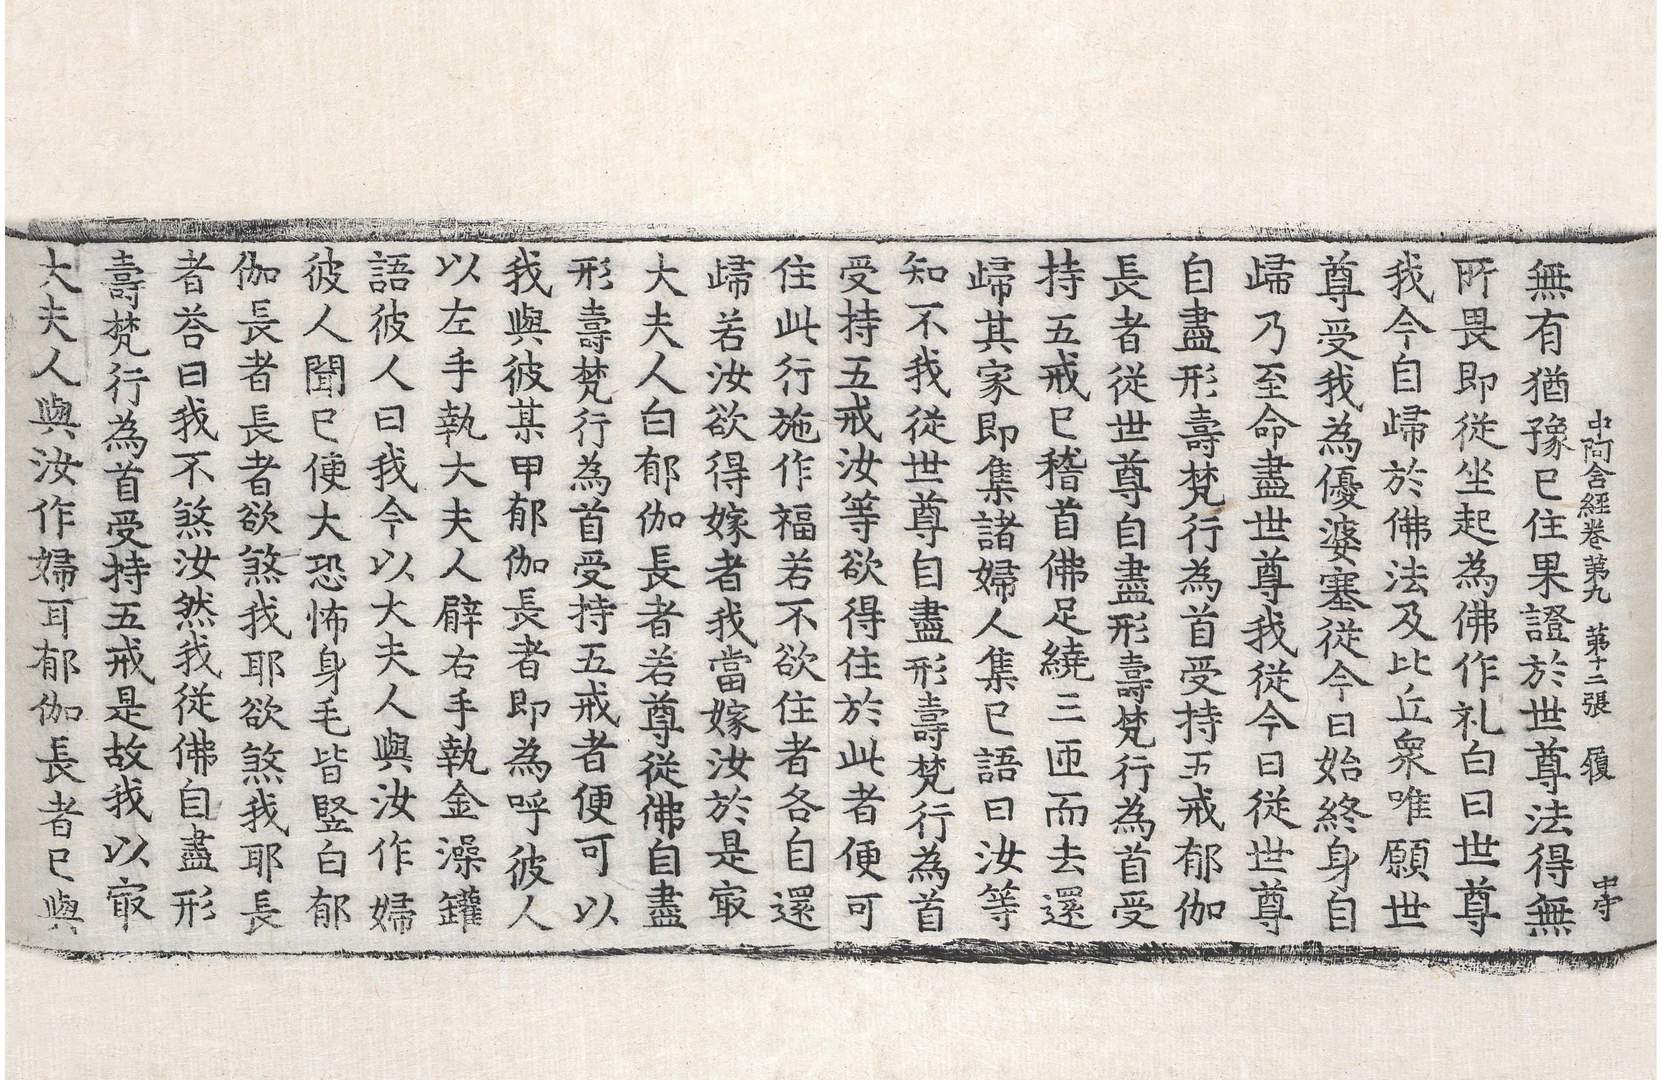 中阿含経卷第九 第十二張 履 中守
無有猶豫已住果證於世尊法得無
所畏即從坐起為佛作礼白曰世尊
我今自歸於佛法及比丘衆唯願世
尊受我為優婆塞從今日始終身自
歸乃至命盡世尊我從今日從世尊
自盡形壽梵行為首受持五戒郁伽
長者從世尊自盡形壽梵行為首受
持五戒已稽首佛足繞三匝而去還
歸其家即集諸婦人集已語曰汝等
知不我從世尊自盡形壽梵行為首
受持五戒汝等欲得住於此者便可
住此行施作福若不欲住者各自還
歸若汝欲得嫁者我當嫁汝於是冣
大夫人白郁伽長者若尊從佛自盡
形壽梵行為首受持五戒者便可以
我與彼某甲郁伽長者即為呼彼人
以左手執大夫人臂右手執金澡罐
語彼人曰我今以大夫人與汝作婦
彼人聞已便大恐怖身毛皆竪白郁
伽長者長者欲煞我耶欲煞我耶長
者荅曰我不煞汝然我從佛自盡形
壽梵行為首受持五戒是故我以冣
大夫人與汝作婦耳郁伽長者已與